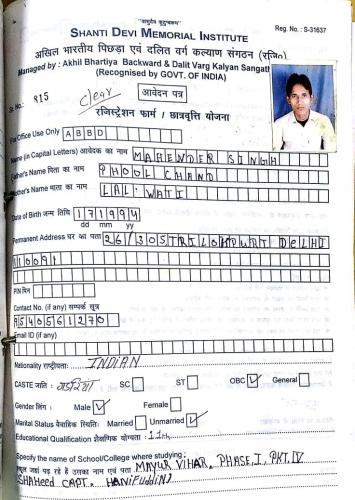 "वसुधैव कुटुम्बकम्"
Reg. No. : S-31637
SHANTI DEVI MEMORIAL INSTITUTE
अखिल भारतीय पिछड़ा एवं दलित वर्ग कल्याण संगठन (रजि०)
Managed by : Akhil Bhartiya Backward & Dalit Varg Kalyan Sangath
(Recognised by GOVT. OF INDIA)
Sr. No. 815
clear
आवेदन पत्र
रजिस्ट्रेशन फार्म / छात्रवृत्ति योजना
Office Use Only A B B D
Name (in Capital Letters) आवेदक का नाम MAHENDER SINGH
Father's Name पिता का नाम PHOOL CHAND
Mother's Name माता का नाम LAL. WATI
Date of Birth जन्म तिथि 171994
dd mm yy
Permanent Address घर का पता 26/305 TRILOKPURI DELHI
110091
PIN पिन
Contact No. (if any) सम्पर्क सूत्र
9540561270
Email ID (if any)
Nationality राष्ट्रीयता: INDIAN
CASTE जाति : गडरिया SC ST OBC ✓ General
Gender लिंग : Male ✓ Female
Marital Status वैवाहिक स्थिति: Married Unmarried ✓
Educational Qualification शैक्षणिक योग्यता : 11th
Specify the name of School/College where studying:
स्कूल जहां पढ़ रहे हैं उसका नाम एवं पता MAYUR VIHAR. PHASE I, PKT. IV
SHAHEED CAPT. HANIFUDDIN